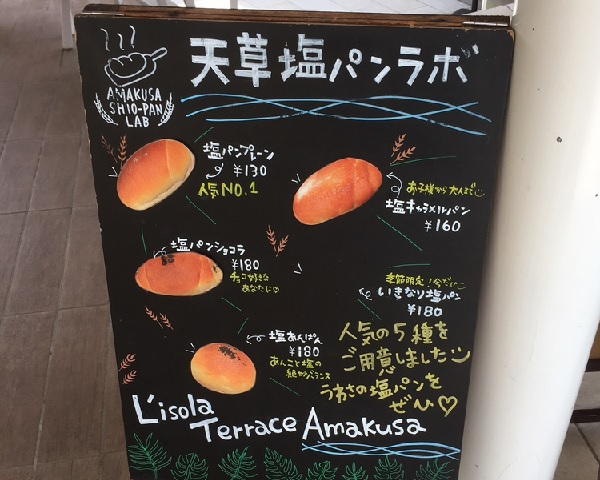 天草塩パンラボ
AMAKUSA
SHIO-PAN
LAB
塩パンプレーン
¥130
人気NO.1
お子様から大人まで
塩キャラメルパン
¥160
塩パンショコラ
¥180
チョコ好きな
あなたに
季節限定!今だけ
いきなり塩パン
¥180
塩あんぱん
¥180
あんこと塩の
絶妙バランス
人気の5種を
ご用意しました
うわさの塩パンを
ぜひ♡
L'isola
Terrace Amakusa